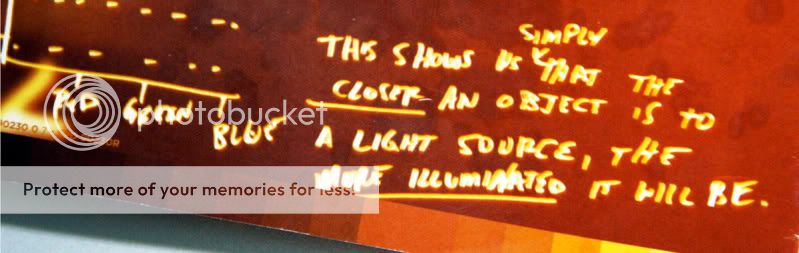 SIMPLY
THIS SHOWS US THAT THE
CLOSER AN OBJECT IS TO
A LIGHT SOURCE, THE
MORE ILLUMINATED IT WILL BE.
RED GREEN BLUE
photobucket
Protect more of your memories for less!